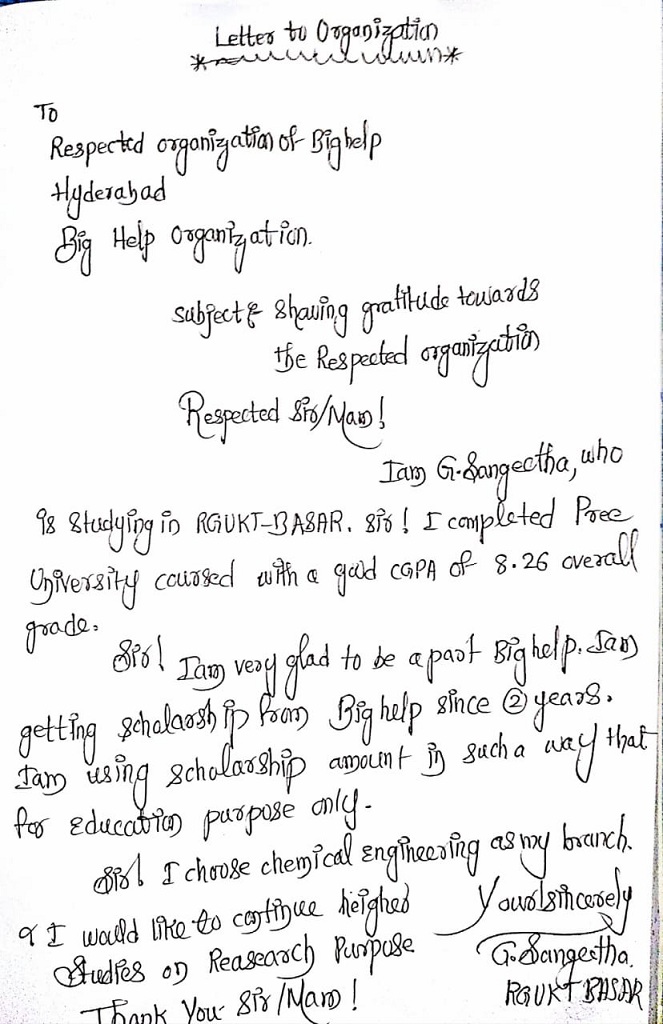 Letter to Organization
To
Respected organization of Bighelp
Hyderabad
Big Help Organization.
Subject: Showing gratitude towards
the Respected organization
Respected Sir/Mam!
Iam G.Sangeetha, who
is studying in RGUKT-BASAR. Sir! I completed Pree
University coursed with a good CGPA of 8.26 overall
grade.
Sir! Iam very glad to be a part Bighelp. Iam
getting scholarship from Bighelp since 2 years.
Iam using scholarship amount in such a way that
for education purpose only.
Sir! I choose chemical engineering as my branch.
& I would like to continue heigher
studies on Reasearch Purpose
Thank You Sir/Mam!
Yoursincerely
G.Sangeetha.
RGUKT BASAR